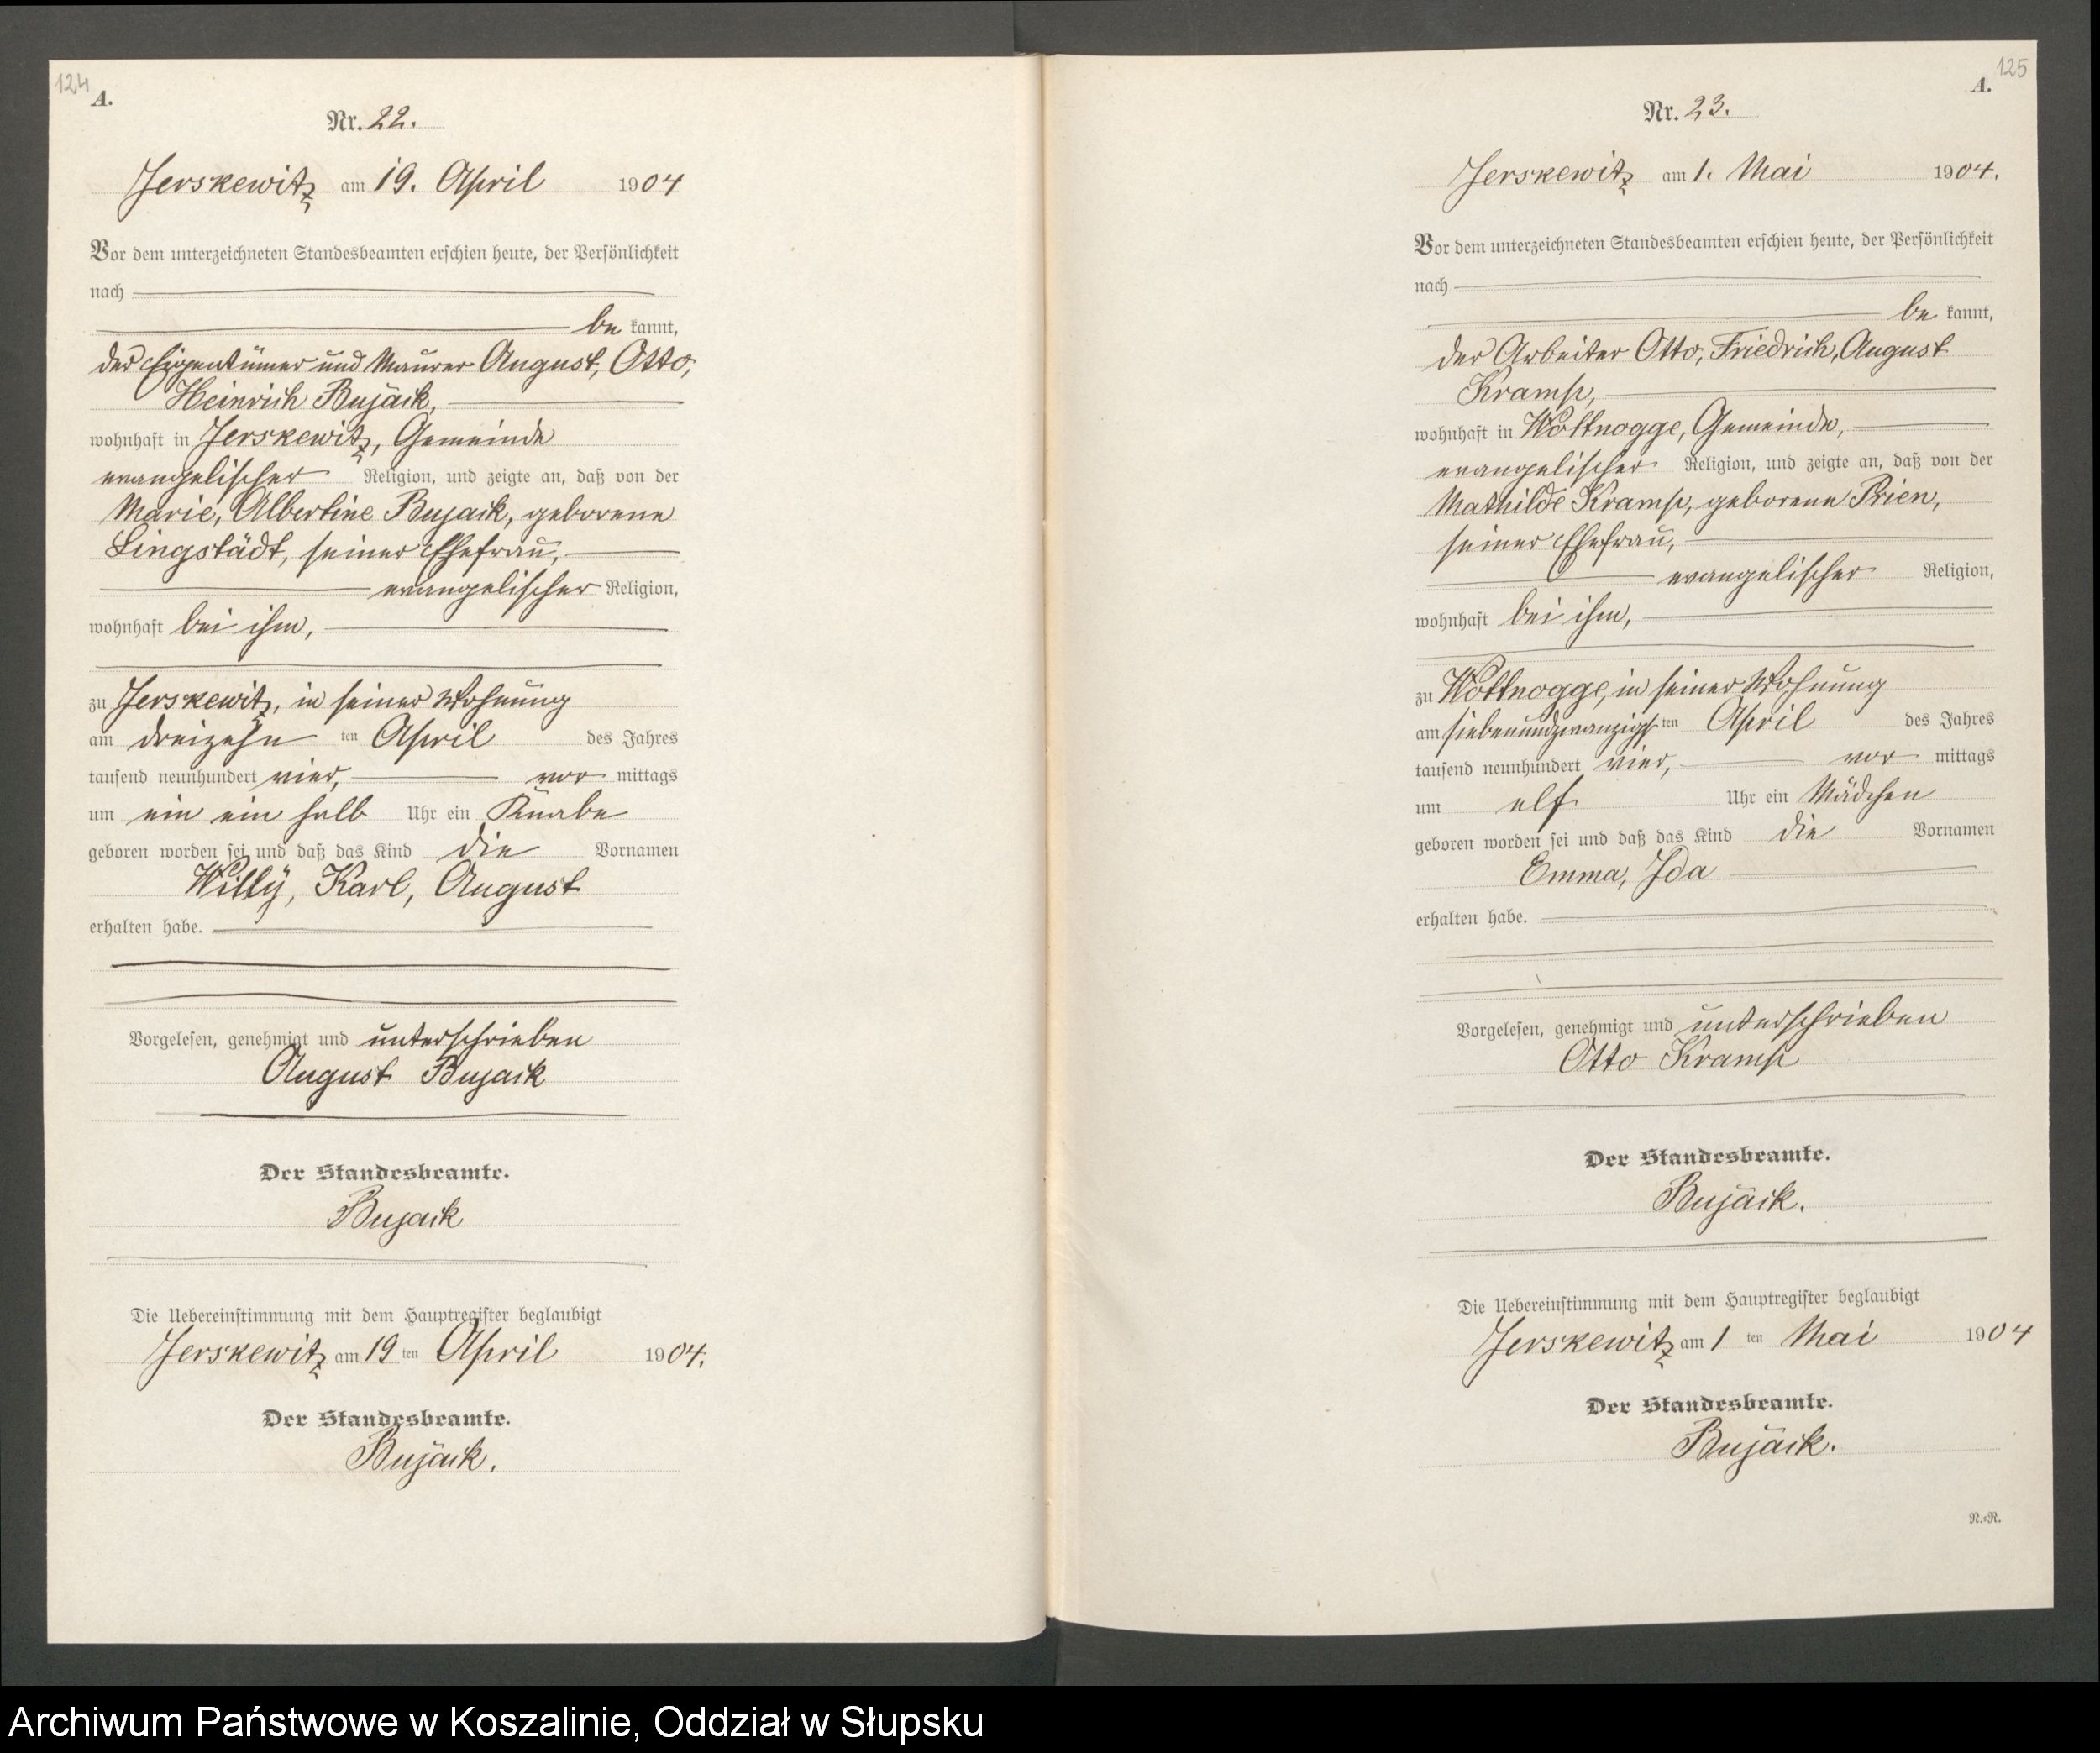 124
A.
Nr. 22.
Jerskewitz am 19. April 1904
Vor dem unterzeichneten Standesbeamten erschien heute, der Persönlichkeit
nach
be kannt,
der Eigentümer und Maurer August, Otto,
Heinrich Bujack,
wohnhaft in Jerskewitz, Gemeinde
evangelischer Religion, und zeigte an, daß von der
Marie, Albertine Bujack, geborene
Lingstädt, seiner Ehefrau,
evangelischer Religion,
wohnhaft bei ihm,
zu Jerskewitz, in seiner Wohnung
am dreizehn ten April des Jahres
tausend neunhundert vier, vor mittags
um ein ein halb Uhr ein Knabe
geboren worden sei und daß das Kind die Vornamen
Willÿ, Karl, August
erhalten habe.
Vorgelesen, genehmigt und unterschrieben
August Bujack
Der Standesbeamte.
Bujack
Die Uebereinstimmung mit dem Hauptregister beglaubigt
Jerskewitz am 19 ten April 1904.
Der Standesbeamte.
Bujack.
125
A.
Nr. 23.
Jerskewitz am 1. Mai 1904.
Vor dem unterzeichneten Standesbeamten erschien heute, der Persönlichkeit
nach
be kannt,
der Arbeiter Otto, Friedrich, August
Kramp,
wohnhaft in Wottnogge, Gemeinde,
evangelischer Religion, und zeigte an, daß von der
Mathilde Kramp, geborene Prien,
seiner Ehefrau,
evangelischer Religion,
wohnhaft bei ihm,
zu Wottnogge, in seiner Wohnung
am siebenundzwanzigs ten April des Jahres
tausend neunhundert vier, vor mittags
um elf Uhr ein Mädchen
geboren worden sei und daß das Kind die Vornamen
Emma, Ida
erhalten habe.
Vorgelesen, genehmigt und unterschrieben
Otto Kramp
Der Standesbeamte.
Bujack.
Die Uebereinstimmung mit dem Hauptregister beglaubigt
Jerskewitz am 1 ten Mai 1904
Der Standesbeamte.
Bujack.
N.=N.
Archiwum Państwowe w Koszalinie, Oddział w Słupsku